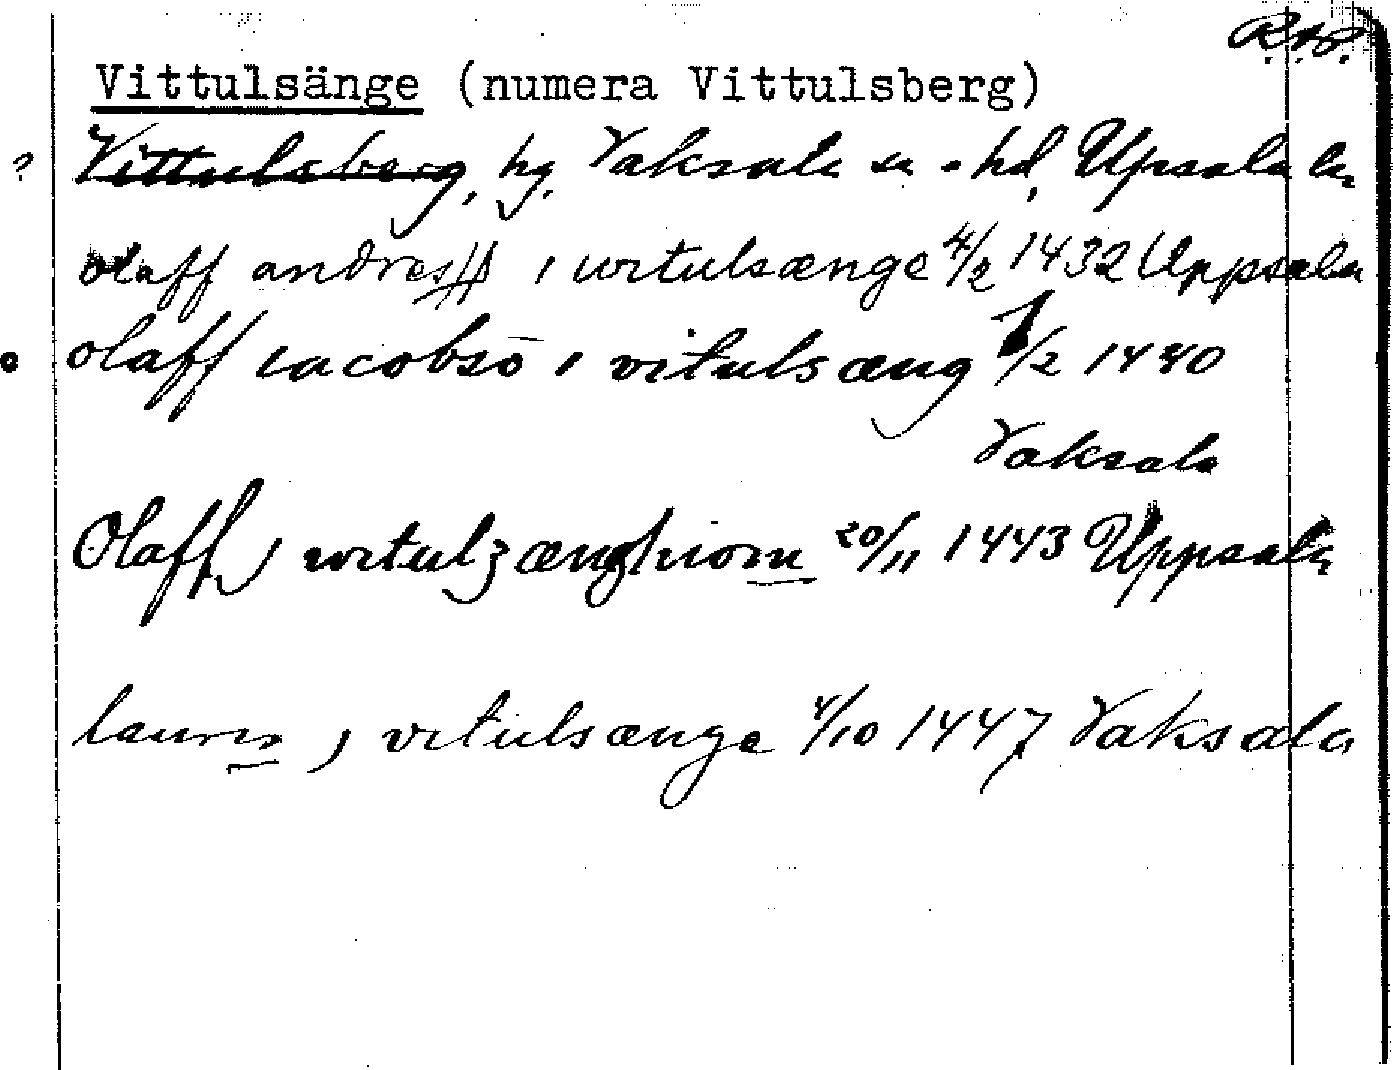 R.A.
Vittulsänge (numera Vittulsberg)
? Vittulsberg, hg, Vaksala sn o. hd, Upsala ln
olaff andresss i witulsænge 4/2 1432 Uppsala
olaff iacobsō i vitulsæng 1/2 1440
Vaksala
Olaff j witulzænghiom 20/11 1443 Uppsala
laurns j vitulsænge 4/10 1447 Vaksala